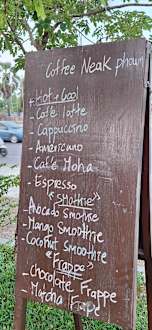 Coffee Neak phum
+ Hot + Cool
- Cafe latte
- Cappuccino
- Americano
- Cafe Moha
- Espresso
"SMOTHIE"
- Avocado Smothie
- Mango Smoothie
- Coconut Smoothie
"Frappe"
- Chocolate Frappe
- Matcha Frape